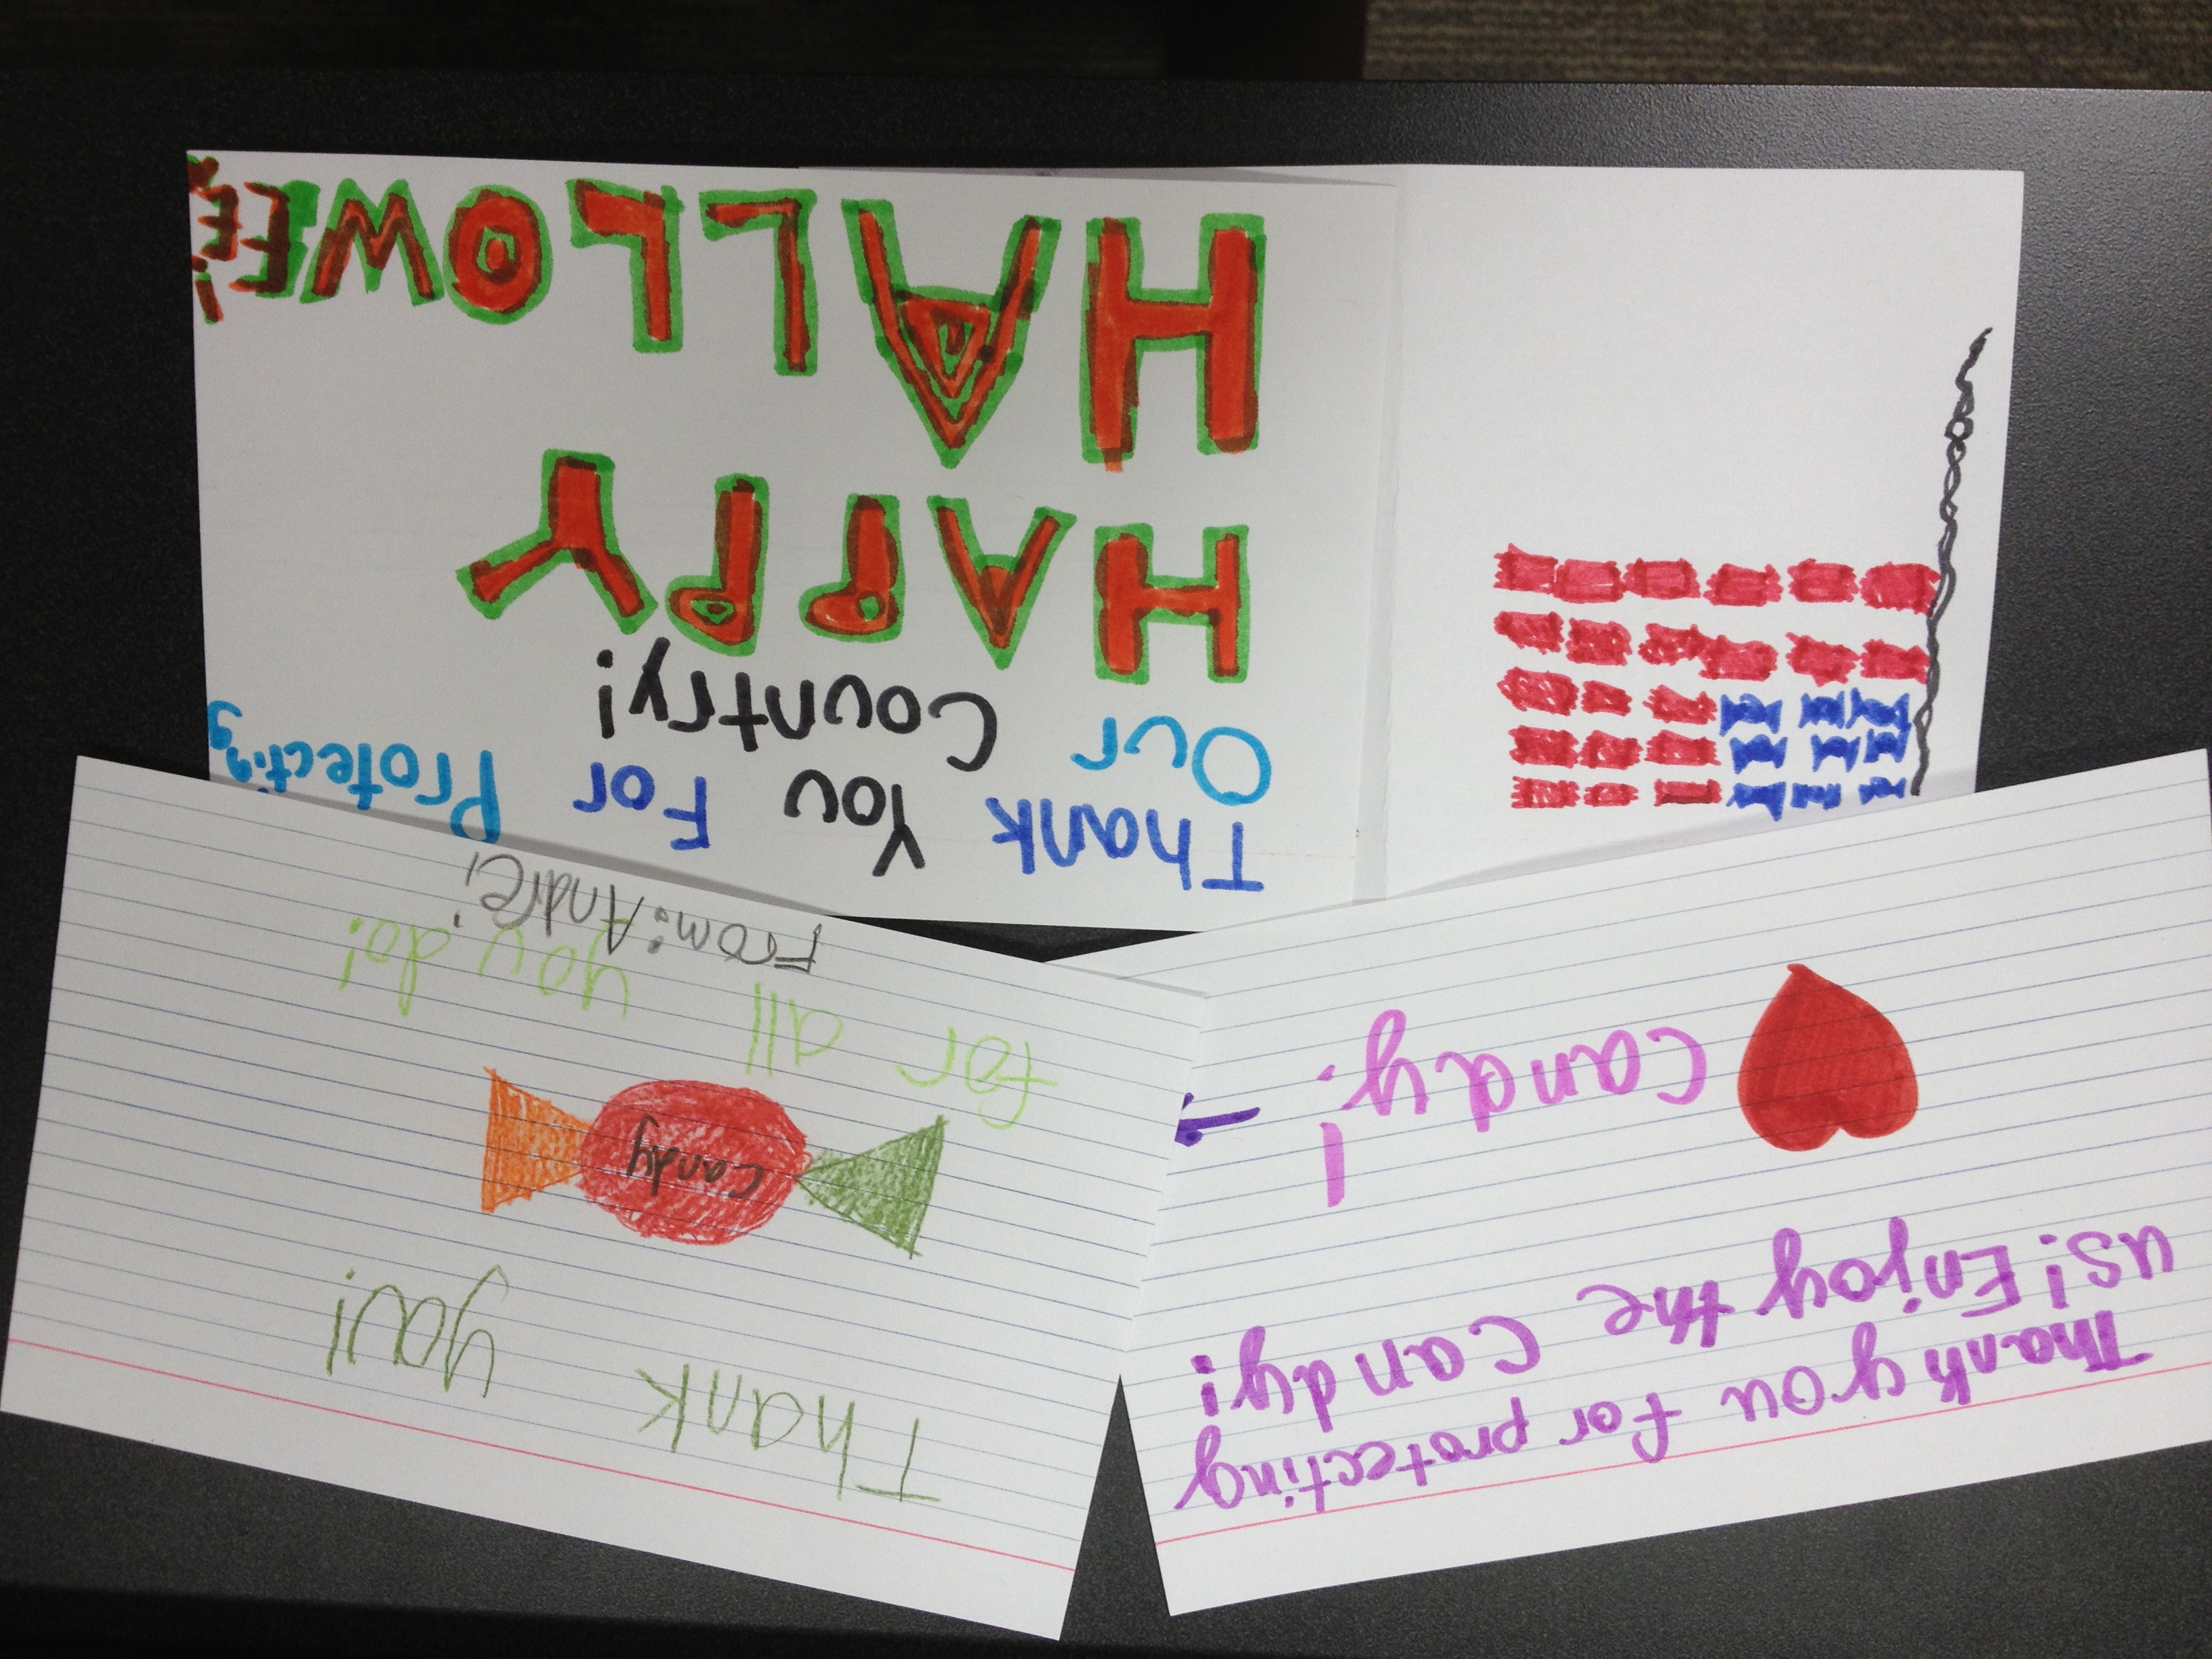 Thank you for protecting
us! Enjoy the Candy!
candy!
Thank you!
candy
for all you do!
From: André!
Thank You For Protecting
Our Country!
HAPPY
HALLOWEEN!